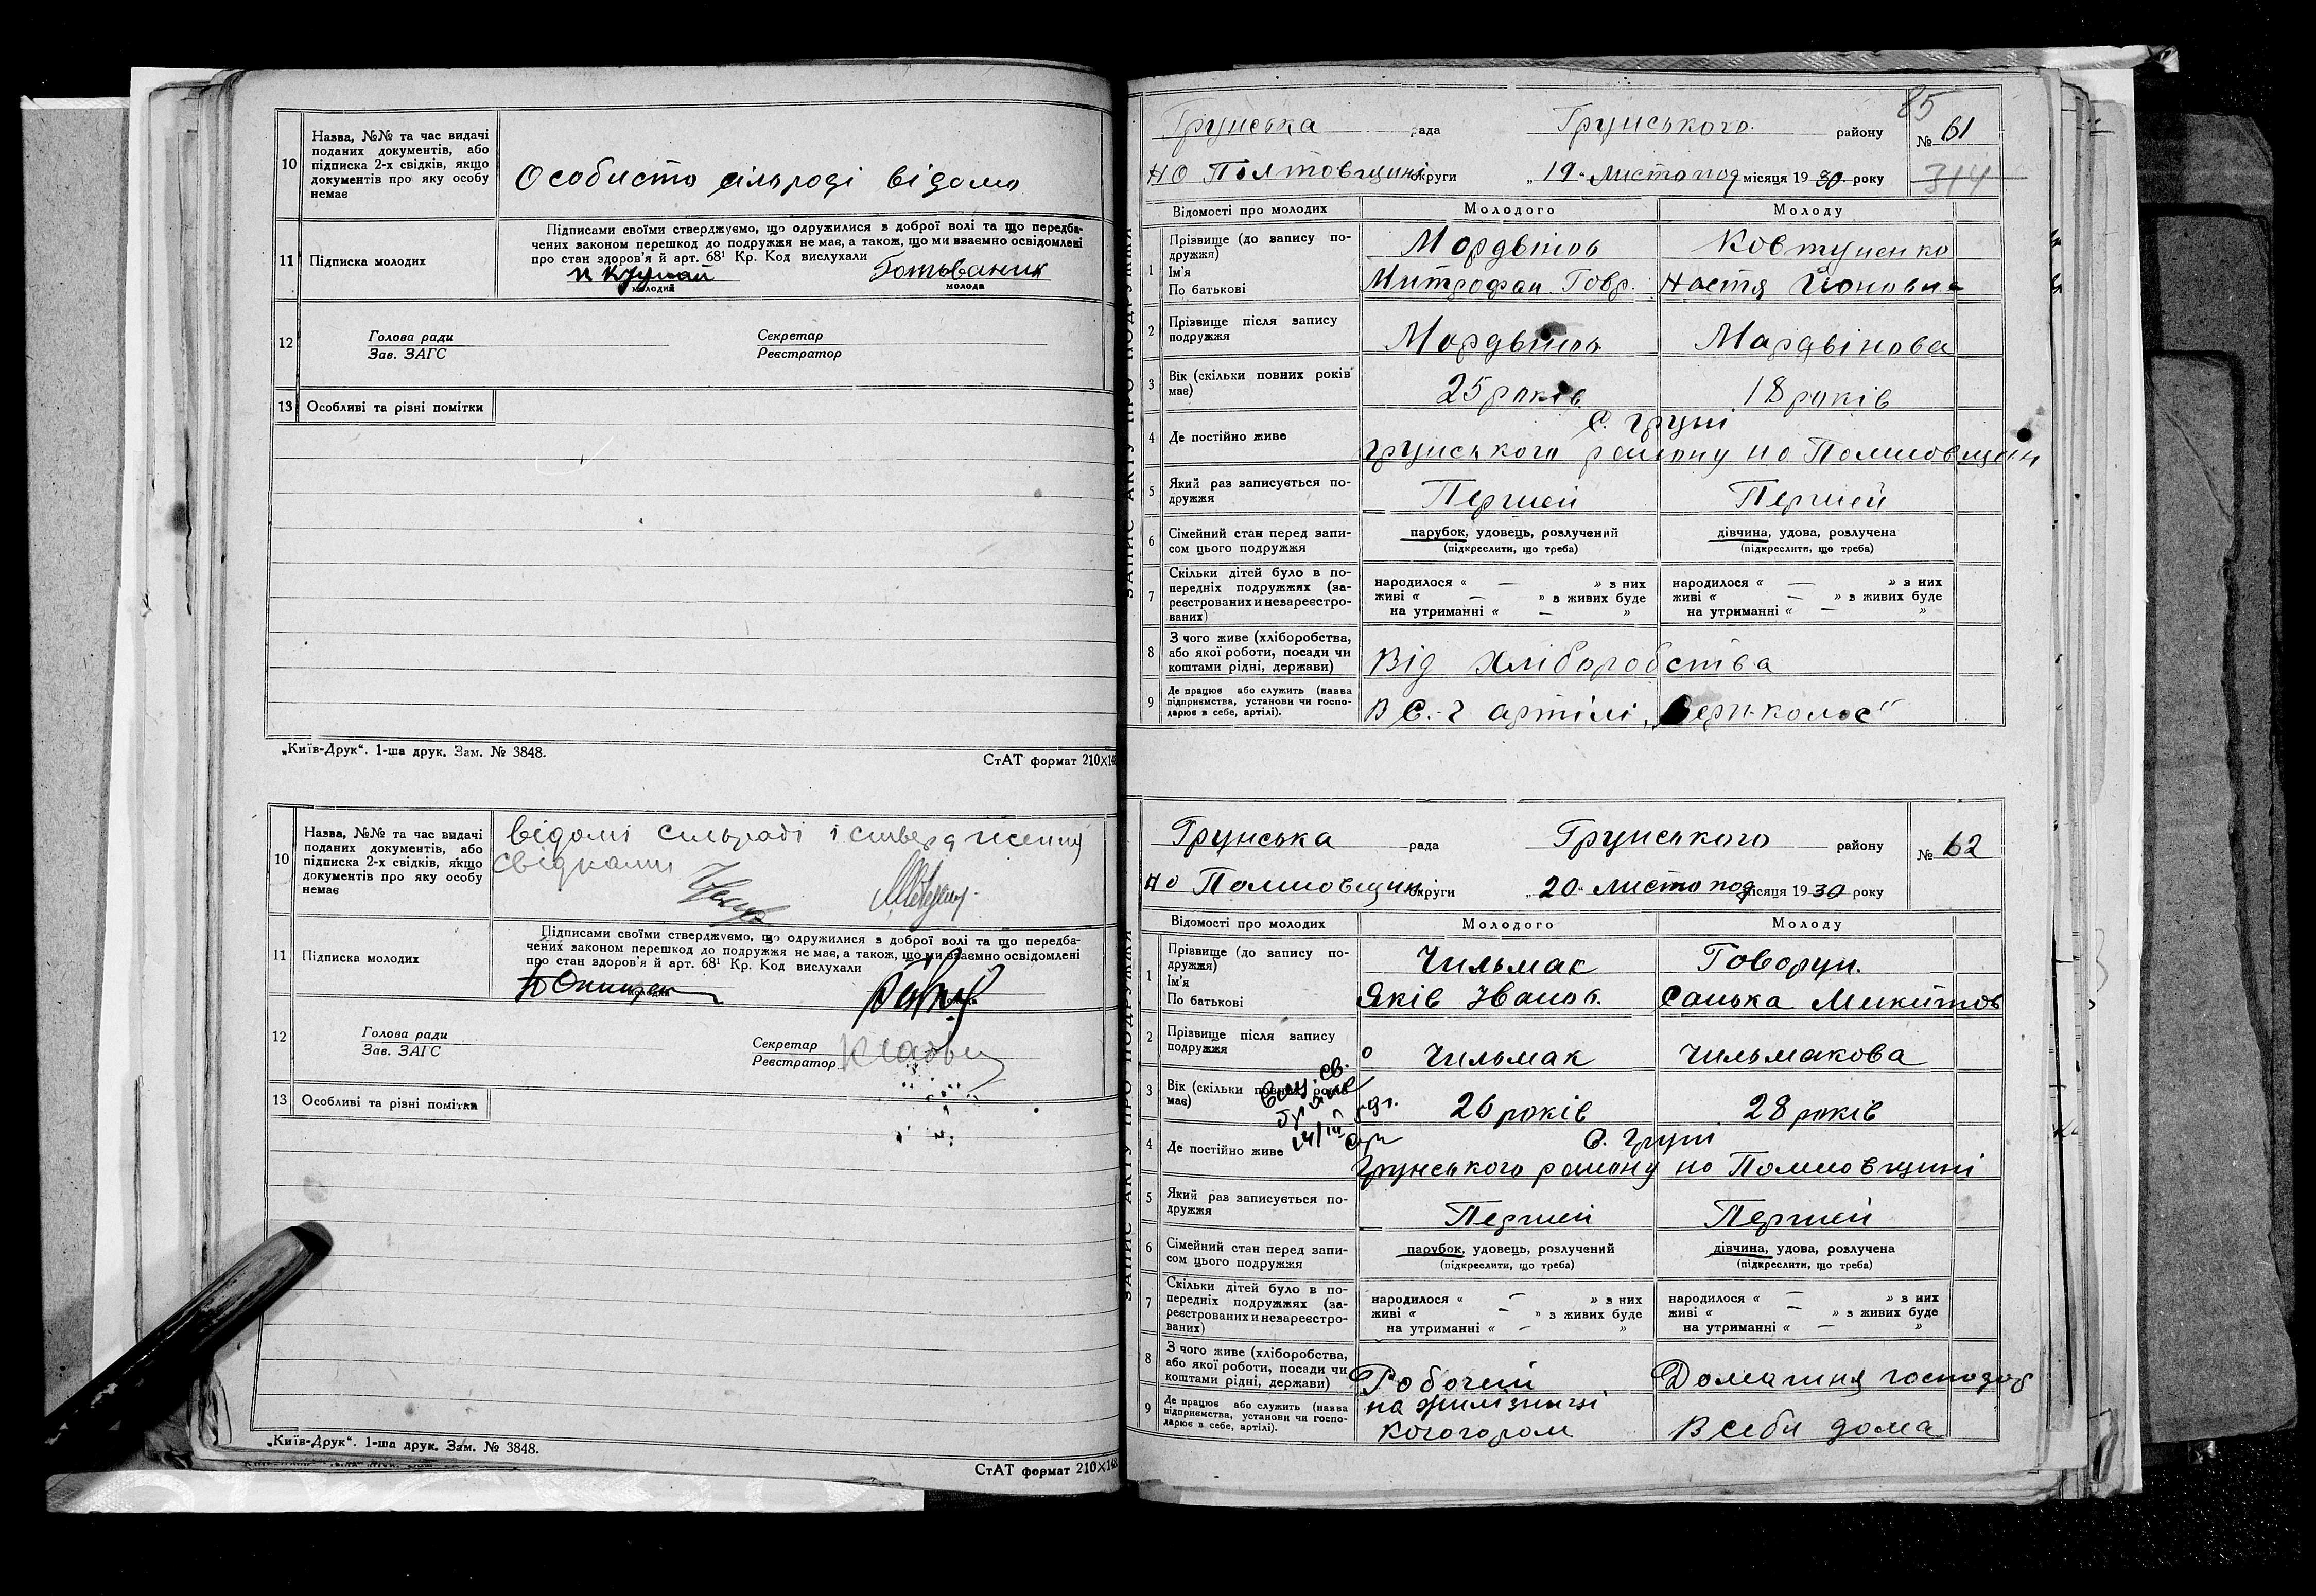 10
Назва, №№ та час видачі
поданих документів, або
підписка 2-х свідків, якщо
документів про яку особу
немає
Особисто сільраді відомо
11
Підписка молодих
Підписами своїми стверджуємо, що одружилися з доброї волі та що передба-
чених законом перешкод до подружжя не має, а також, що ми взаємно освідомлені
про стан здоров'я й арт. 68¹ Кр. Код вислухали
молодий
молода
12
Голова ради
Зав. ЗАГС
Секретар
Реєстратор
13
Особливі та різні помітки
„Київ-Друк“. 1-ша друк. Зам. № 3848.
СтАТ формат 210×148
10
Назва, №№ та час видачі
поданих документів, або
підписка 2-х свідків, якщо
документів про яку особу
немає
відомі сильраді і
свідками
11
Підписка молодих
Підписами своїми стверджуємо, що одружилися з доброї волі та що передба-
чених законом перешкод до подружжя не має, а також, що ми взаємно освідомлені
про стан здоров'я й арт. 68¹ Кр. Код вислухали
12
Голова ради
Зав. ЗАГС
Секретар
Реєстратор
13
Особливі та різні помітки
„Київ-Друк“. 1-ша друк. Зам. № 3848.
СтАТ формат 210×148
ЗАПИС АКТУ ПРО ПОДРУЖЖЯ
85
Грунська рада Грунського району № 61
по Полтовщині округи „19“ листопод місяця 1930 року
314
Відомості про молодих
Молодого
Молоду
1
Прізвище (до запису по-
дружжя)
Мордвінов
Ковтуненко
Ім'я
По батькові
Митрофан Говр.
Настя Йоновна
2
Прізвище після запису
подружжя
Мордвінов
Мардвінова
3
Вік (скільки повних років
має)
25 років
18 років
4
Де постійно живе
С. Груні
Грунського району по Полтовщині
5
Який раз записується по-
дружжя
Першей
Першей
6
Сімейний стан перед запи-
сом цього подружжя
парубок, удовець, розлучений
(підкреслити, що треба)
дівчина, удова, розлучена
(підкреслити, що треба)
7
Скільки дітей було в по-
передніх подружжях (за-
реєстрованих и незареєстро-
ваних)
народилося « — » з них
живі « — » з живих буде
на утриманні « — »
народилося « — » з них
живі « — » з живих буде
на утриманні « — »
8
З чого живе (хліборобства,
або якої роботи, посади чи
коштами рідні, держави)
Від хліборобства
9
Де працює або служить (назва
підприємства, установи чи госпо-
дарює в себе, артілі).
В С.-г артілі
ЗАПИС АКТУ ПРО ПОДРУЖЖЯ
Грунська рада Грунського району № 62
по Полтовщині округи „20“ листопод місяця 1930 року
Відомості про молодих
Молодого
Молоду
1
Прізвище (до запису по-
дружжя)
Чильмак
Говорун.
Ім'я
По батькові
Яків Іванов.
Санька Микитов
2
Прізвище після запису
подружжя
Чильмак
Чильмакова
3
Вік (скільки повних років
має)
26 років
28 років
4
Де постійно живе
С. Груні
Грунського району по Полтовщині
5
Який раз записується по-
дружжя
Першей
Першей
6
Сімейний стан перед запи-
сом цього подружжя
парубок, удовець, розлучений
(підкреслити, що треба)
дівчина, удова, розлучена
(підкреслити, що треба)
7
Скільки дітей було в по-
передніх подружжях (за-
реєстрованих и незареєстро-
ваних)
народилося « — » з них
живі « — » з живих буде
на утриманні « — »
народилося « — » з них
живі « — » з живих буде
на утриманні « — »
8
З чого живе (хліборобства,
або якої роботи, посади чи
коштами рідні, держави)
Робочей
Домашня господар
9
Де працює або служить (назва
підприємства, установи чи госпо-
дарює в себе, артілі).
на жилізниці
кочогором
В себи дома